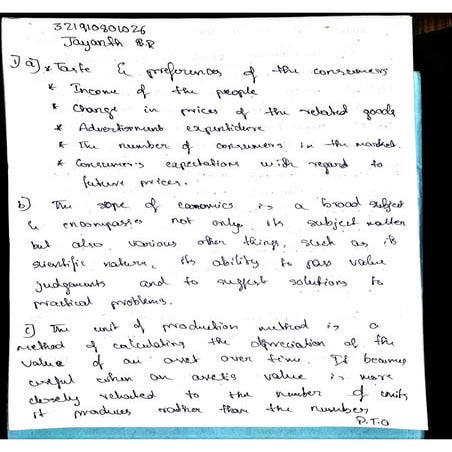 321910801026
Jayanth B.R
1) a) * Taste & preferences of the consumers
* Income of the people
* Change in prices of the related goods
* Advertisement expenditure
* The number of consumers in the market.
* Consumer's expectations with regard to
future prices.
b) The scope of economics is a broad subject
& encompasses not only its subject matter
but also various other things, such as its
scientific nature, its ability to pass value
judgements and to suggest solutions to
practical problems.
c) The unit of production method is a
method of calculating the depreciation of the
value of an asset over time. It becomes
useful when an asset's value is more
closely related to the number of units
it produces rather than the number
P.T.O